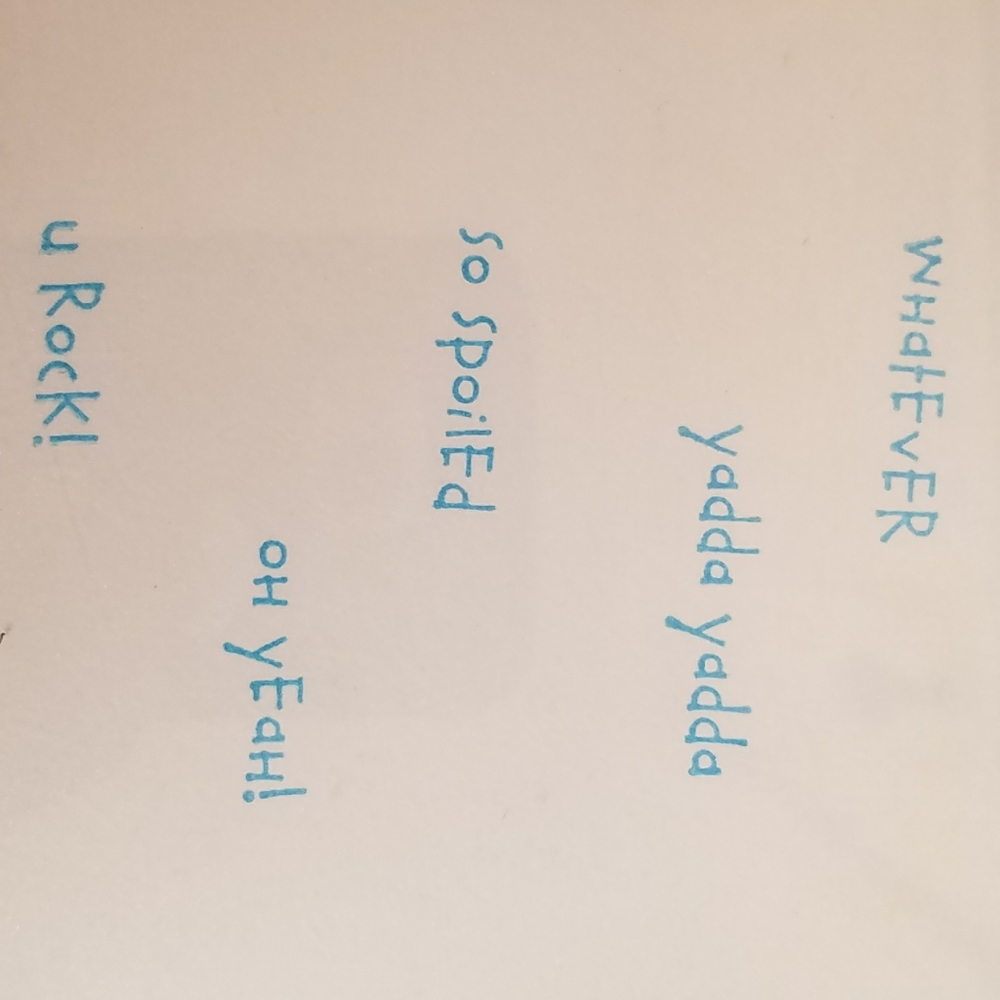 WHatEvER
yadda yadda
So SpoilEd
oH yEaH!
u Rock!